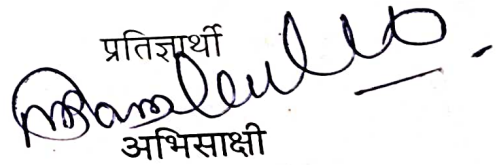 प्रतिज्ञार्थी
अभिसाक्षी